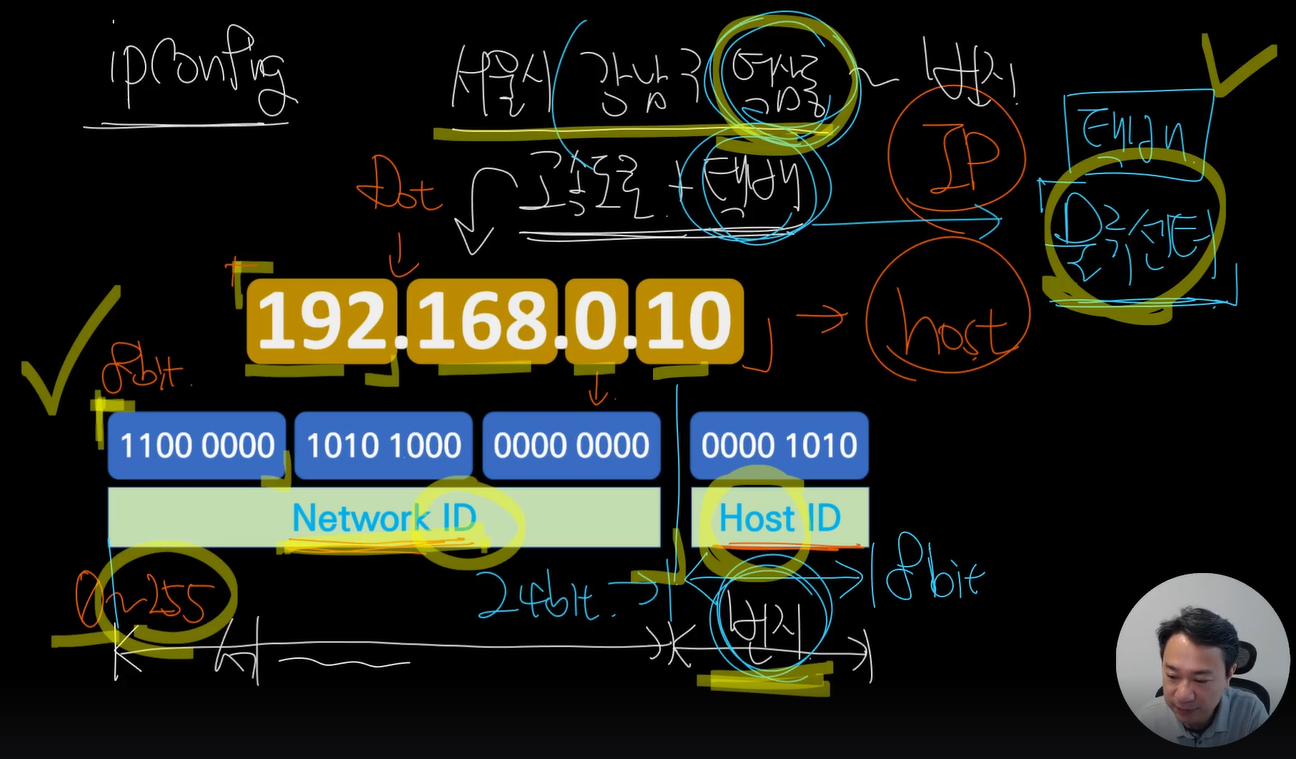 ipconfig
서울시 강남구 역삼동 ~ 번지
IP
Dot
192.168.0.10
host
8bit.
1100 0000 1010 1000 0000 0000 0000 1010
Network ID Host ID
0~255
24bit.
8bit
번지